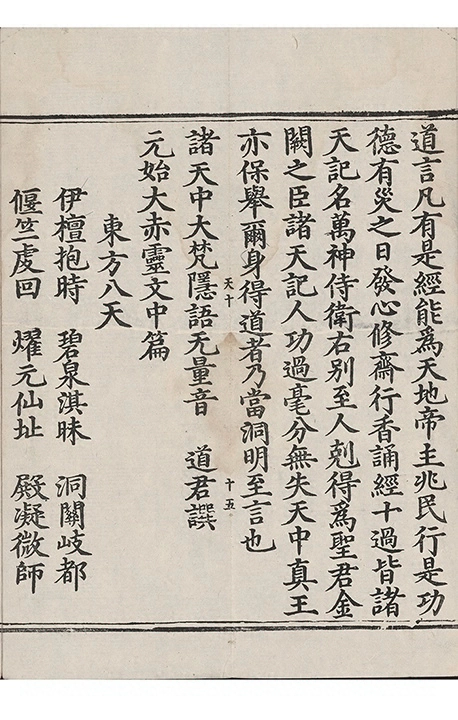 道言凡有是經能爲天地帝主兆民行是功
德有災之日發心修齋行香誦經十過皆諸
天記名萬神侍衛右別至人剋得爲聖君金
闕之臣諸天記人功過毫分無失天中真王
亦保舉爾身得道者乃當洞明至言也
天十 十五
諸天中大梵隱語无量音 道君譔
元始大赤靈文中篇
東方八天
伊檀抱時 碧泉淇昧 洞關岐都
偃竺虔回 耀元仙址 殿凝微師